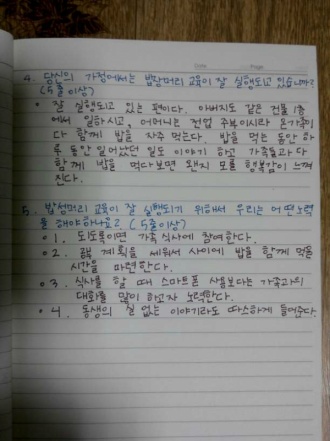 Date Page
4. 당신의 가정에서는 밥상머리 교육이 잘 실행되고 있습니까?
(5줄이상)
• 잘 실행되고 있는 편이다. 아버지도 같은 건물 1층
에서 일하시고, 어머니는 전업 주부이시라 온가족이
다 함께 밥을 자주 먹는다. 밥을 먹는 동안 하
루 동안 일어났던 일도 이야기 하고 가족들과 다
함께 밥을 먹다보면 왠지 모를 행복감이 느껴
진다.
5. 밥상머리 교육이 잘 실행되기 위해서 우리는 어떤노력
을 해야하나요? (5줄이상)
• 1. 되도록이면 가족식사에 참여한다.
• 2. 계획을 세워서 사이에 밥을 함께 먹을
시간을 마련한다.
• 3. 식사를 할 때 스마트폰 사용보다는 가족과의
대화를 많이 하고자 노력한다.
• 4. 동생의 실 없는 이야기라도 따스하게 들어준다.